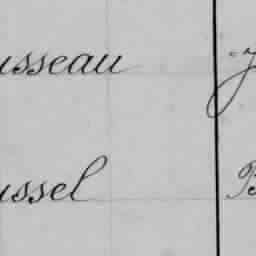 usseau
ussel